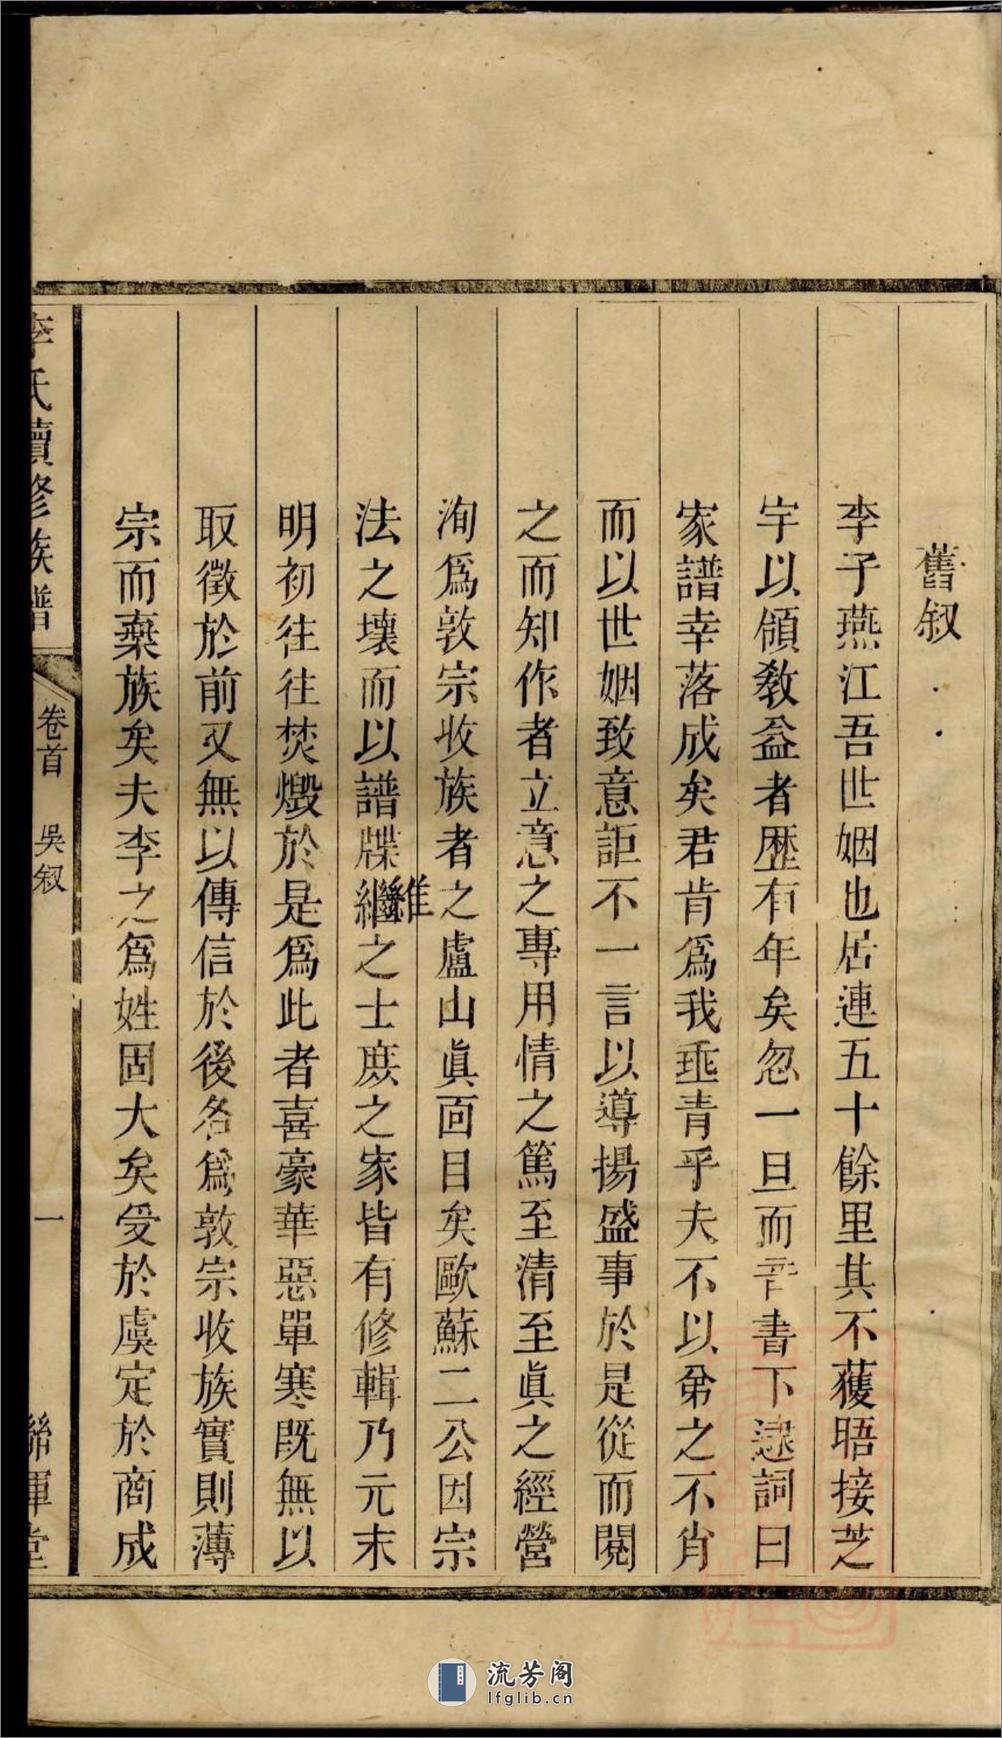 舊叙
李子燕江吾世姻也居連五十餘里其不獲晤接芝
宇以領敎益者歴有年矣忽一旦而音書下逮詞曰
家譜幸落成矣君肯爲我垂青乎夫不以弟之不肖
而以世姻致意詎不一言以導揚盛事於是從而閱
之而知作者立意之專用情之篤至清至眞之經營
洵爲敦宗收族者之盧山眞面目矣歐蘇二公因宗
法之壞而以譜牒繼維之士庶之家皆有修輯乃元末
明初往往焚燬於是爲此者喜豪華惡單寒既無以
取徵於前又無以傳信於後名爲敦宗收族實則薄
宗而棄族矣夫李之爲姓固大矣受於虞定於商成
李氏續修族譜
卷首 吳叙
一
聯輝堂
流芳阁
lfglib.cn